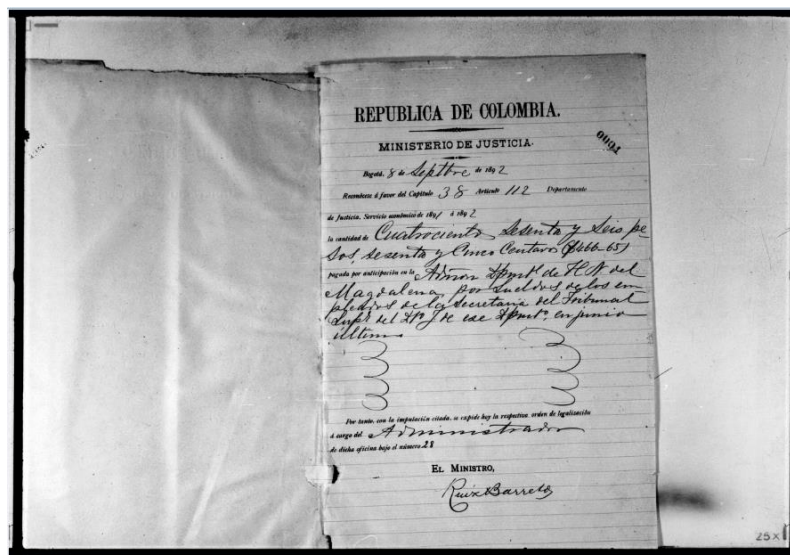 REPUBLICA DE COLOMBIA.
MINISTERIO DE JUSTICIA.
0001
Bogotá, 8 de Septbre de 1892
Reconócese á favor del Capítulo 38 Artículo 112 Departamento
de Justicia. Servicio económico de 1891 á 1892
la cantidad de Cuatrocientos Sesenta y Seis pe
sos, sesenta y Cinco Centavos ($466-65)
pagada por anticipación en la Admon Dpmtl de H. N. del
Magdalena por sueldos de los em
pleados de la Secretaria del Tribunal
Supr. del D. J. de ese Dpmto. en junio
último
Por tanto, con la imputación citada, se expide hoy la respectiva orden de legalización
á cargo del Administrador
de dicha oficina bajo el número 28
EL MINISTRO,
Ruiz Barreto
25X